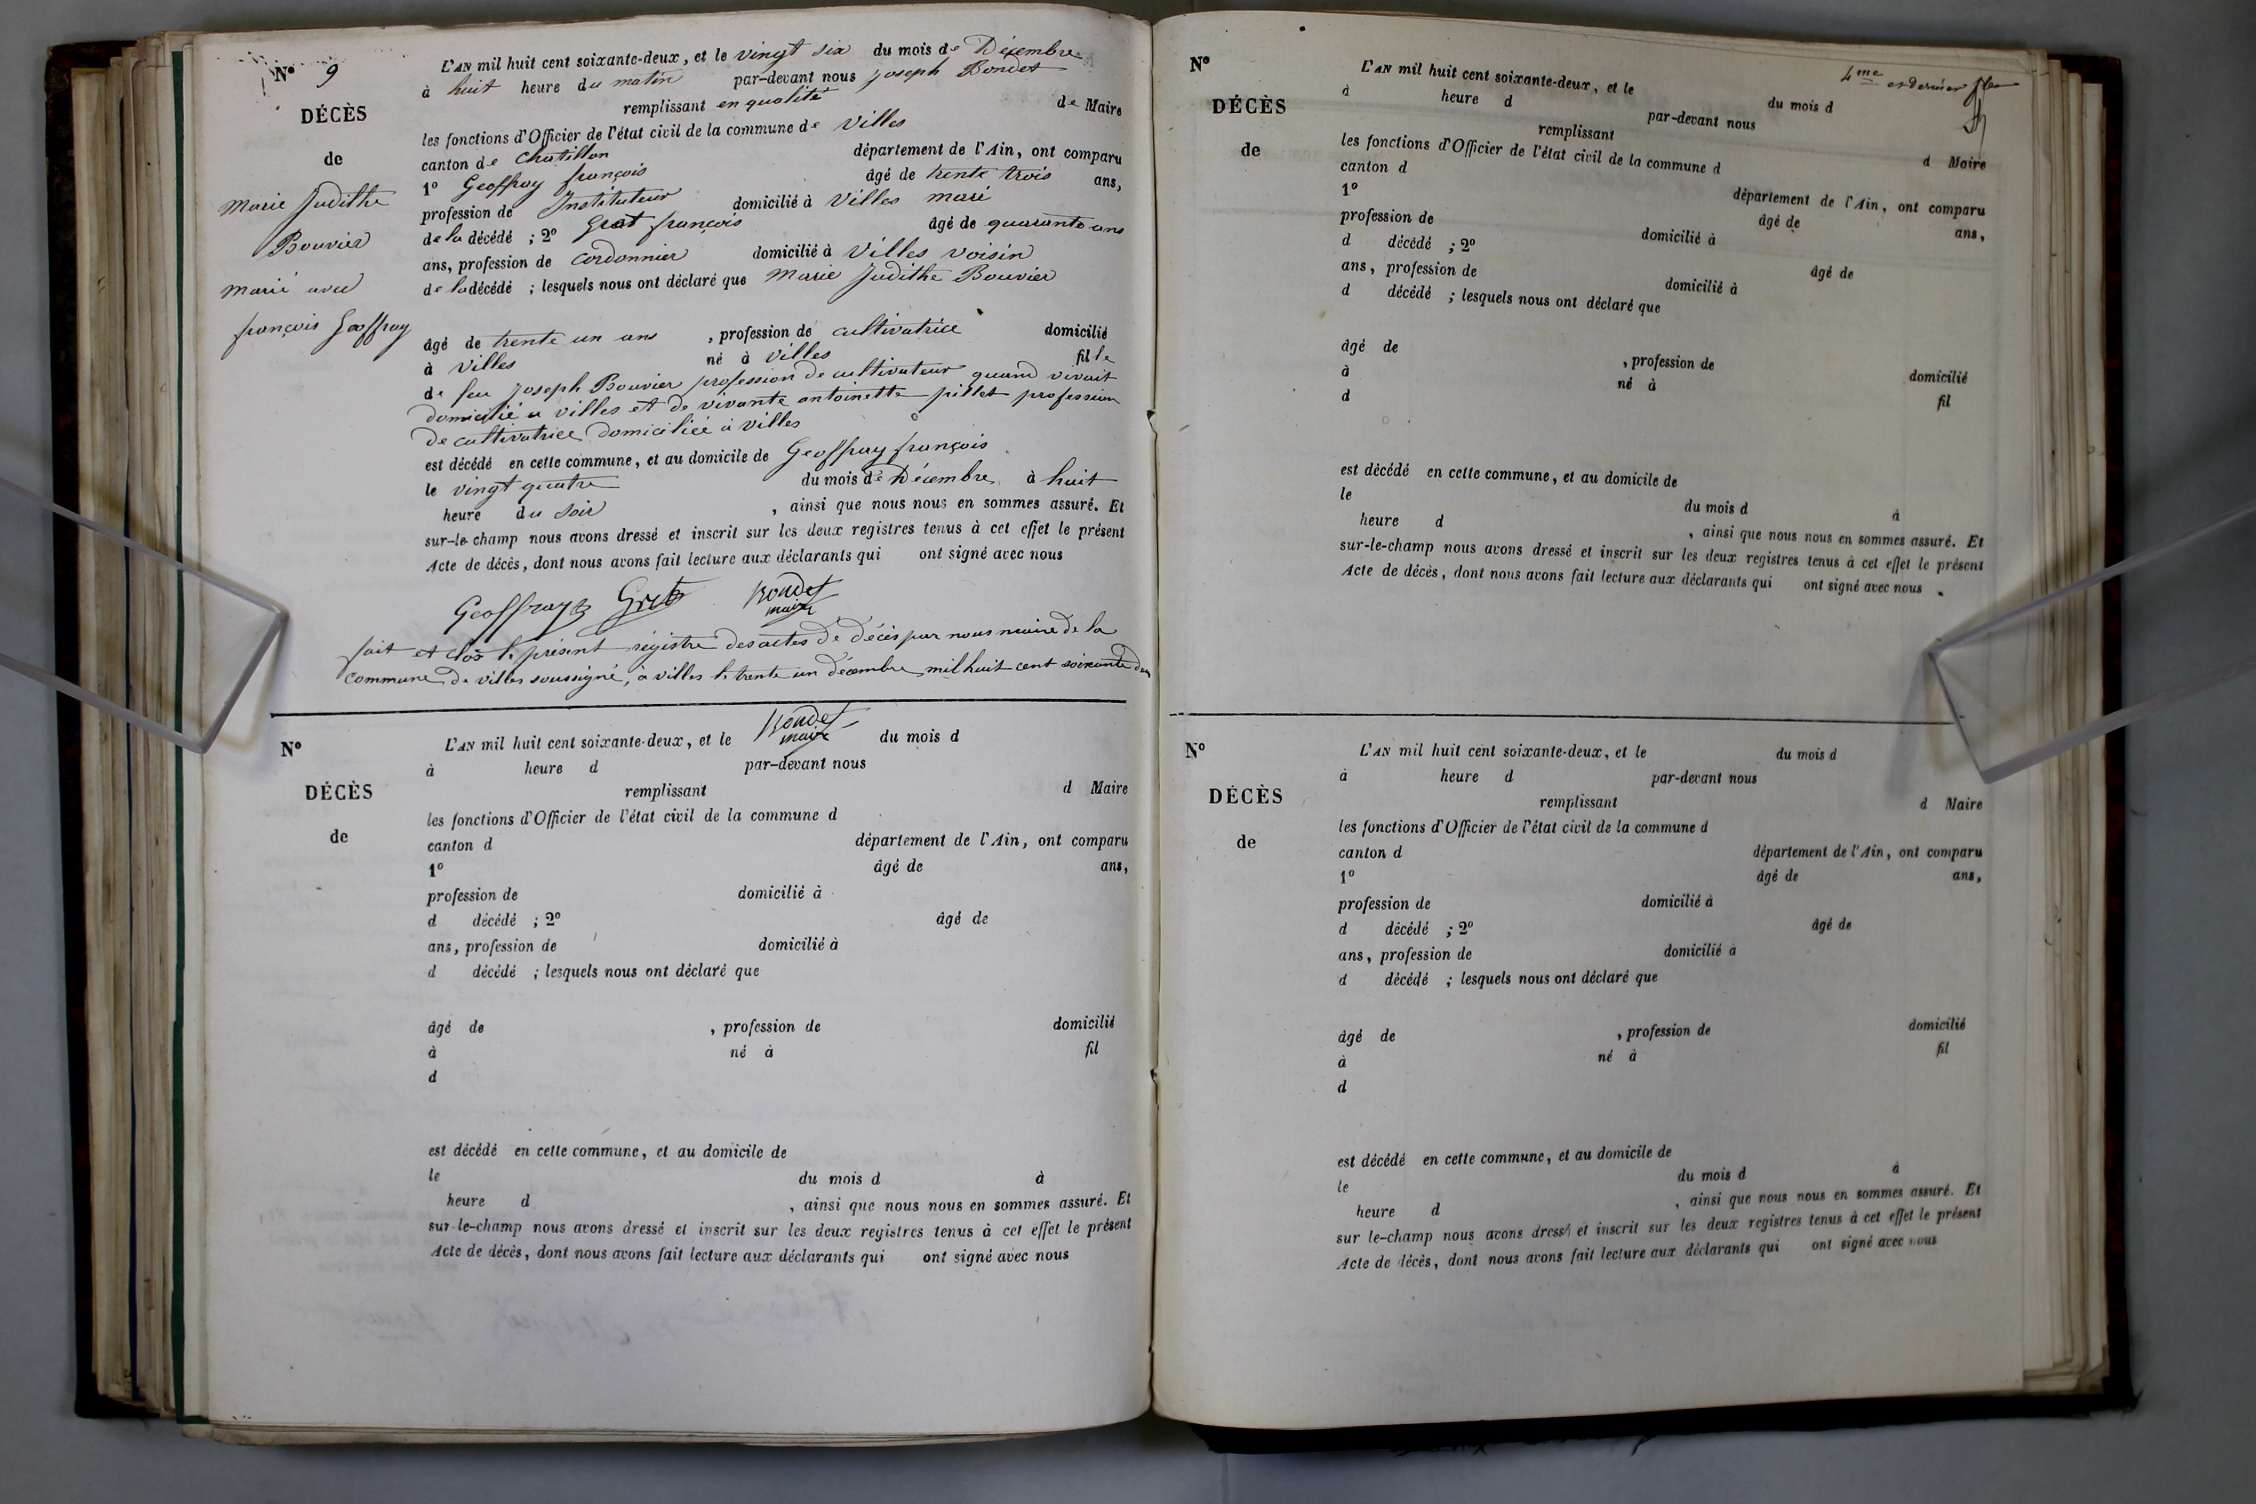 N° 9
DÉCÈS
de
Marie Judithe
Bouvier
marié avec
françois Geoffray
L'AN mil huit cent soixante-deux, et le vingt six du mois de Décembre
à huit heure du matin par-devant nous joseph Bondet
remplissant en qualité de Maire
les fonctions d'Officier de l'état civil de la commune de Villes
canton de Chatillon département de l'Ain, ont comparu
1° Geoffray françois âgé de trente trois ans,
profession de Instituteur domicilié à Villes mari
de la décédé ; 2° Grat françois âgé de quarante ans
ans, profession de cordonnier domicilié à Villes voisin
de la décédé ; lesquels nous ont déclaré que Marie Judithe Bouvier
âgé de trente un ans , profession de cultivatrice domicilié
à Villes né à Villes fille
de feu joseph Bouvier profession de cultivateur quand vivait
domicilié a villes et de vivante antoinette pillet profession
de cultivatrice domiciliée à Villes
est décédé en cette commune, et au domicile de Geoffray françois
le vingt quatre du mois de Décembre à huit
heure du soir , ainsi que nous nous en sommes assuré. Et
sur-le-champ nous avons dressé et inscrit sur les deux registres tenus à cet effet le présent
Acte de décès, dont nous avons fait lecture aux déclarants qui ont signé avec nous
Geoffray Bondet
maire
fait et clos le présent registre des actes de décès par nous maire de la
commune de villes soussigné, à villes le trente un décembre mil huit cent soixante deux
Bondet
maire
N°
DÉCÈS
de
L'AN mil huit cent soixante-deux, et le du mois d
à heure d par-devant nous
remplissant d Maire
les fonctions d'Officier de l'état civil de la commune d
canton d département de l'Ain, ont comparu
1° âgé de ans,
profession de domicilié à
d décédé ; 2° âgé de
ans, profession de domicilié à
d décédé ; lesquels nous ont déclaré que
âgé de , profession de domicilié
à né à fil
d
est décédé en cette commune, et au domicile de
le du mois d à
heure d , ainsi que nous nous en sommes assuré. Et
sur-le-champ nous avons dressé et inscrit sur les deux registres tenus à cet effet le présent
Acte de décès, dont nous avons fait lecture aux déclarants qui ont signé avec nous
4me et dernier
N°
DÉCÈS
de
L'AN mil huit cent soixante-deux, et le du mois d
à heure d par-devant nous
remplissant d Maire
les fonctions d'Officier de l'état civil de la commune d
canton d département de l'Ain, ont comparu
1° âgé de ans,
profession de domicilié à
d décédé ; 2° âgé de
ans, profession de domicilié à
d décédé ; lesquels nous ont déclaré que
âgé de , profession de domicilié
à né à fil
d
est décédé en cette commune, et au domicile de
le du mois d à
heure d , ainsi que nous nous en sommes assuré. Et
sur-le-champ nous avons dressé et inscrit sur les deux registres tenus à cet effet le présent
Acte de décès, dont nous avons fait lecture aux déclarants qui ont signé avec nous .
N°
DÉCÈS
de
L'AN mil huit cent soixante-deux, et le du mois d
à heure d par-devant nous
remplissant d Maire
les fonctions d'Officier de l'état civil de la commune d
canton d département de l'Ain, ont comparu
1° âgé de ans,
profession de domicilié à
d décédé ; 2° âgé de
ans, profession de domicilié a
d décédé ; lesquels nous ont déclaré que
âgé de , profession de domicilié
à né à fil
d
est décédé en cette commune, et au domicile de
le du mois d à
heure d , ainsi que nous nous en sommes assuré. Et
sur le-champ nous avons dressé et inscrit sur les deux registres tenus à cet effet le présent
Acte de décès, dont nous avons fait lecture aux déclarants qui ont signé avec nous